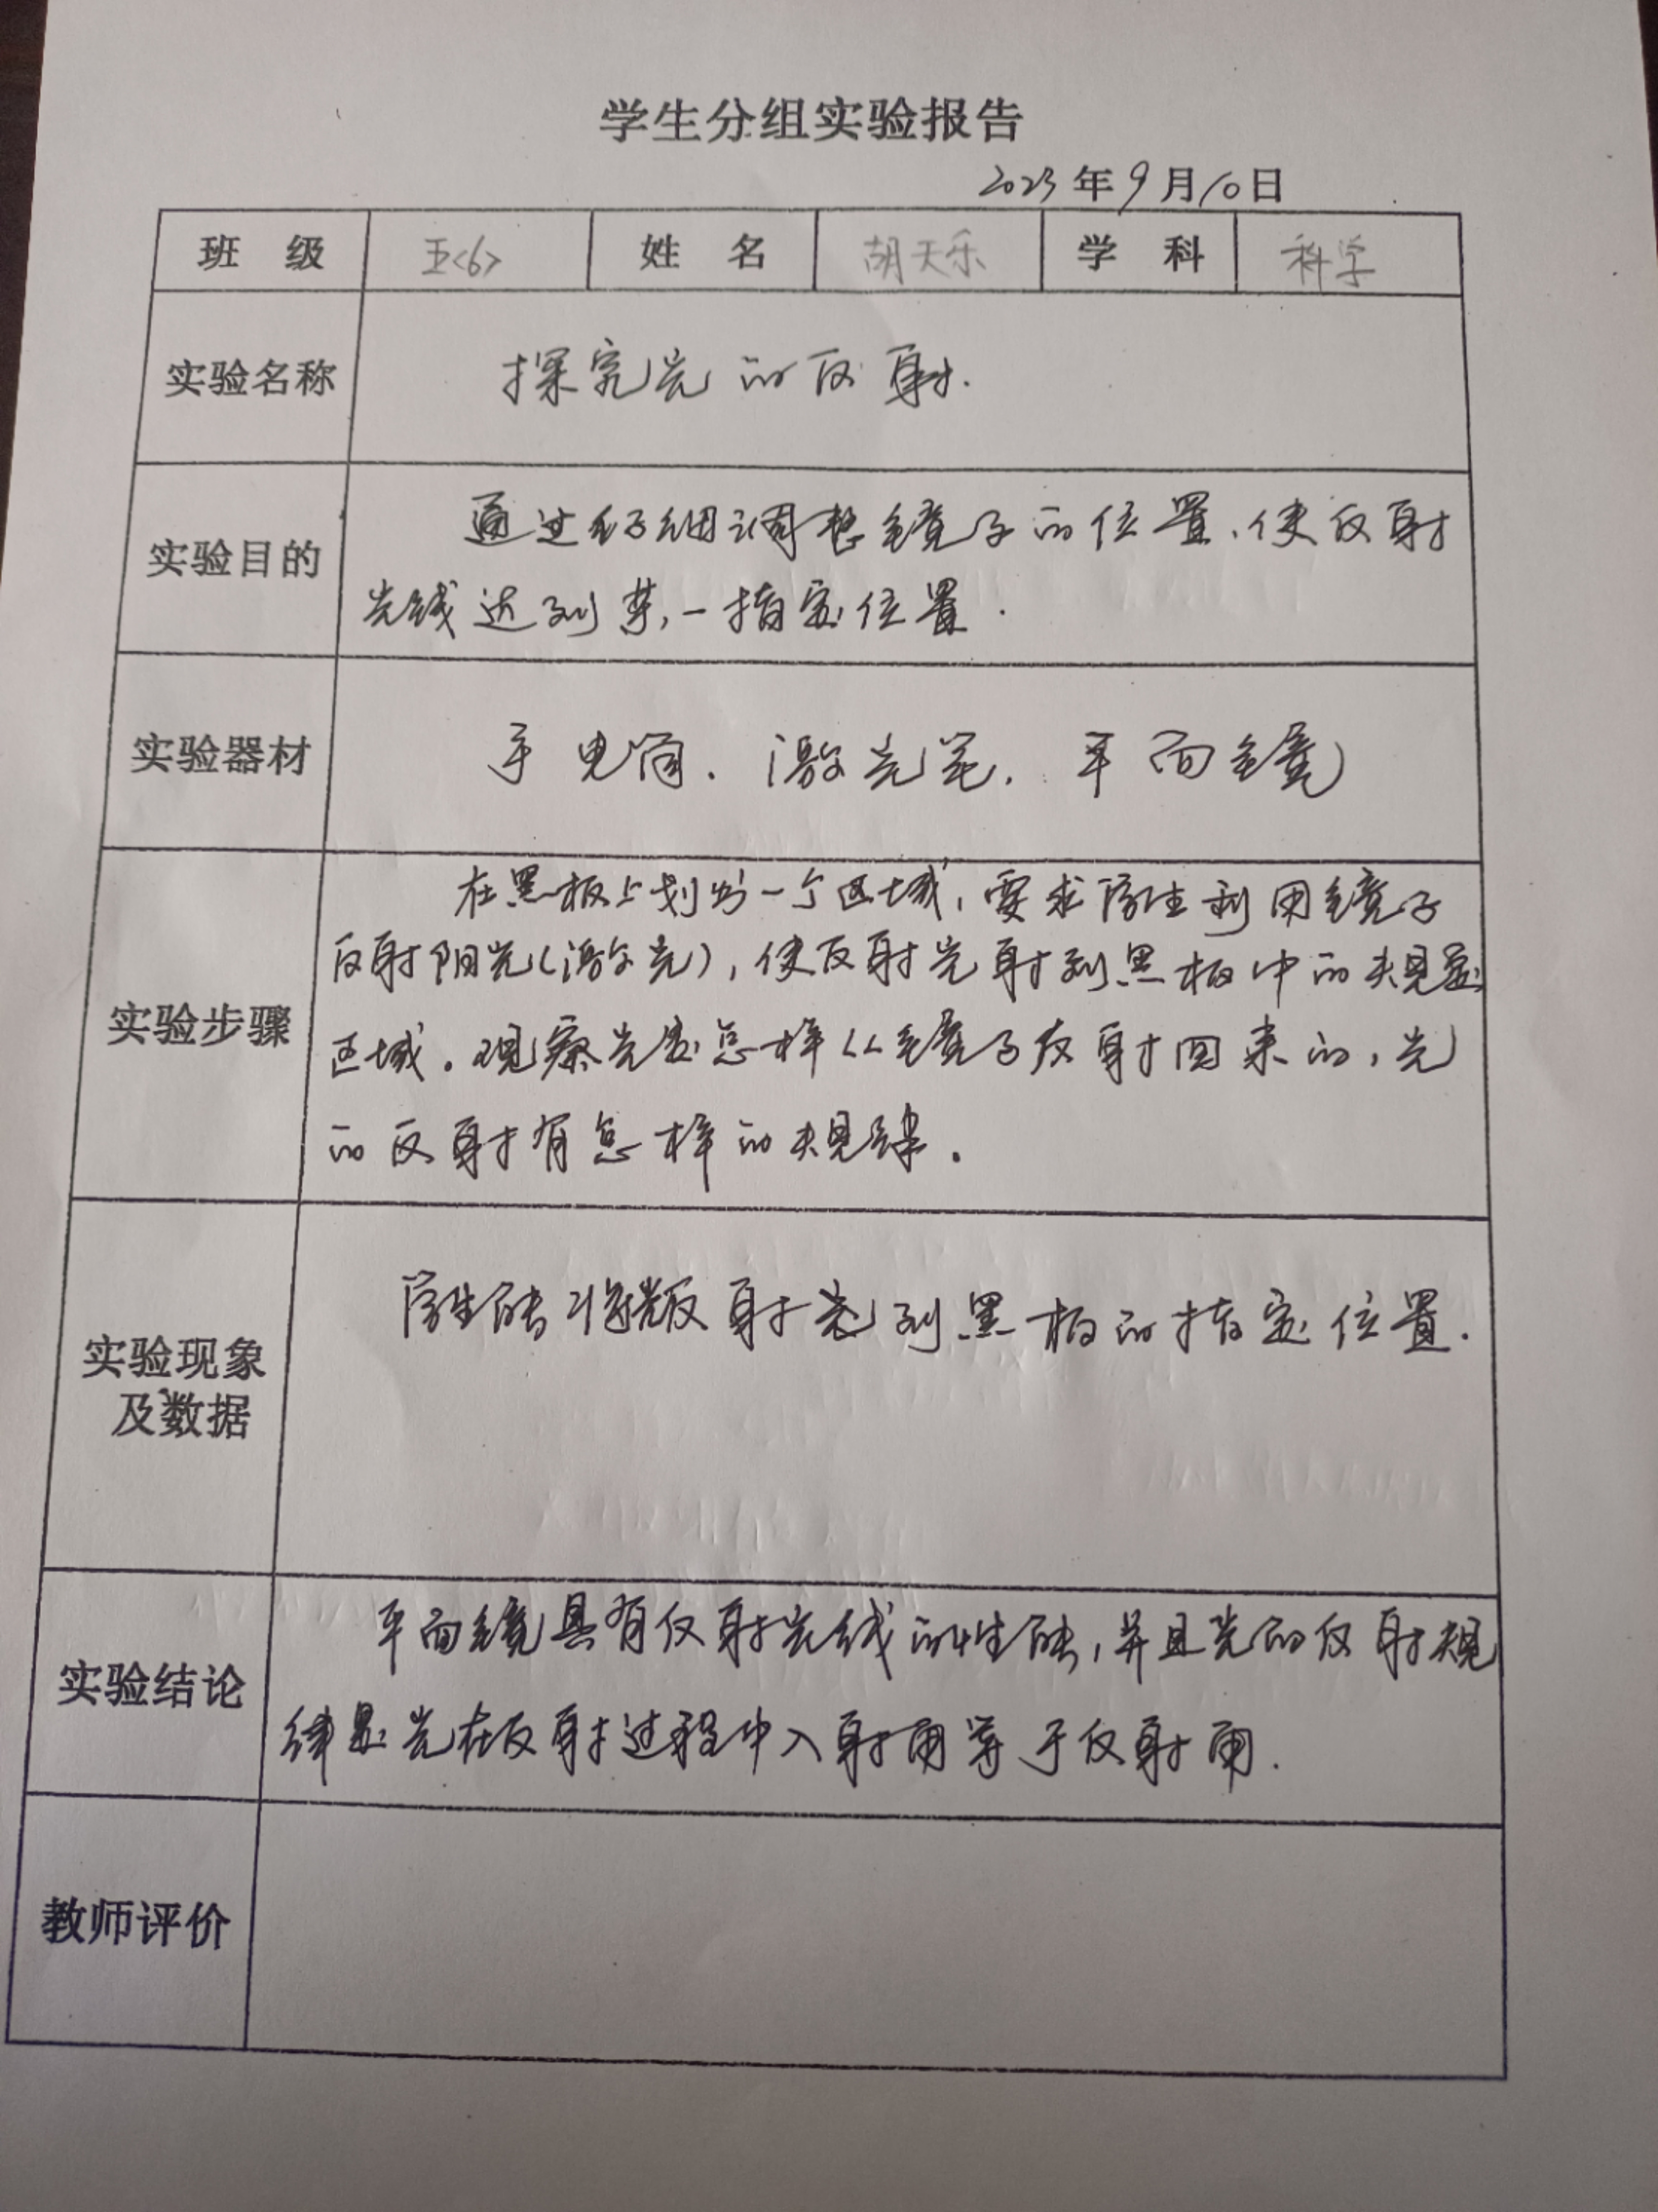 学生分组实验报告
2023年9月10日
班 级 五<6> 姓 名 胡天乐 学 科 科学
实验名称 探究光的反射.
实验目的 通过仔细调整镜子的位置、使反射
光线达到某一指定位置.
实验器材 手电筒. 激光笔. 平面镜
实验步骤 在黑板上划出一个区域,要求学生利用镜子
反射阳光(激光),使反射光射到黑板中的规定
区域。观察光是怎样从镜子反射回来的,光
的反射有怎样的规律。
实验现象
及数据
学生能将反射光到黑板的指定位置.
实验结论 平面镜具有反射光线的性能,并且光的反射规
律是光在反射过程中入射角等于反射角.
教师评价